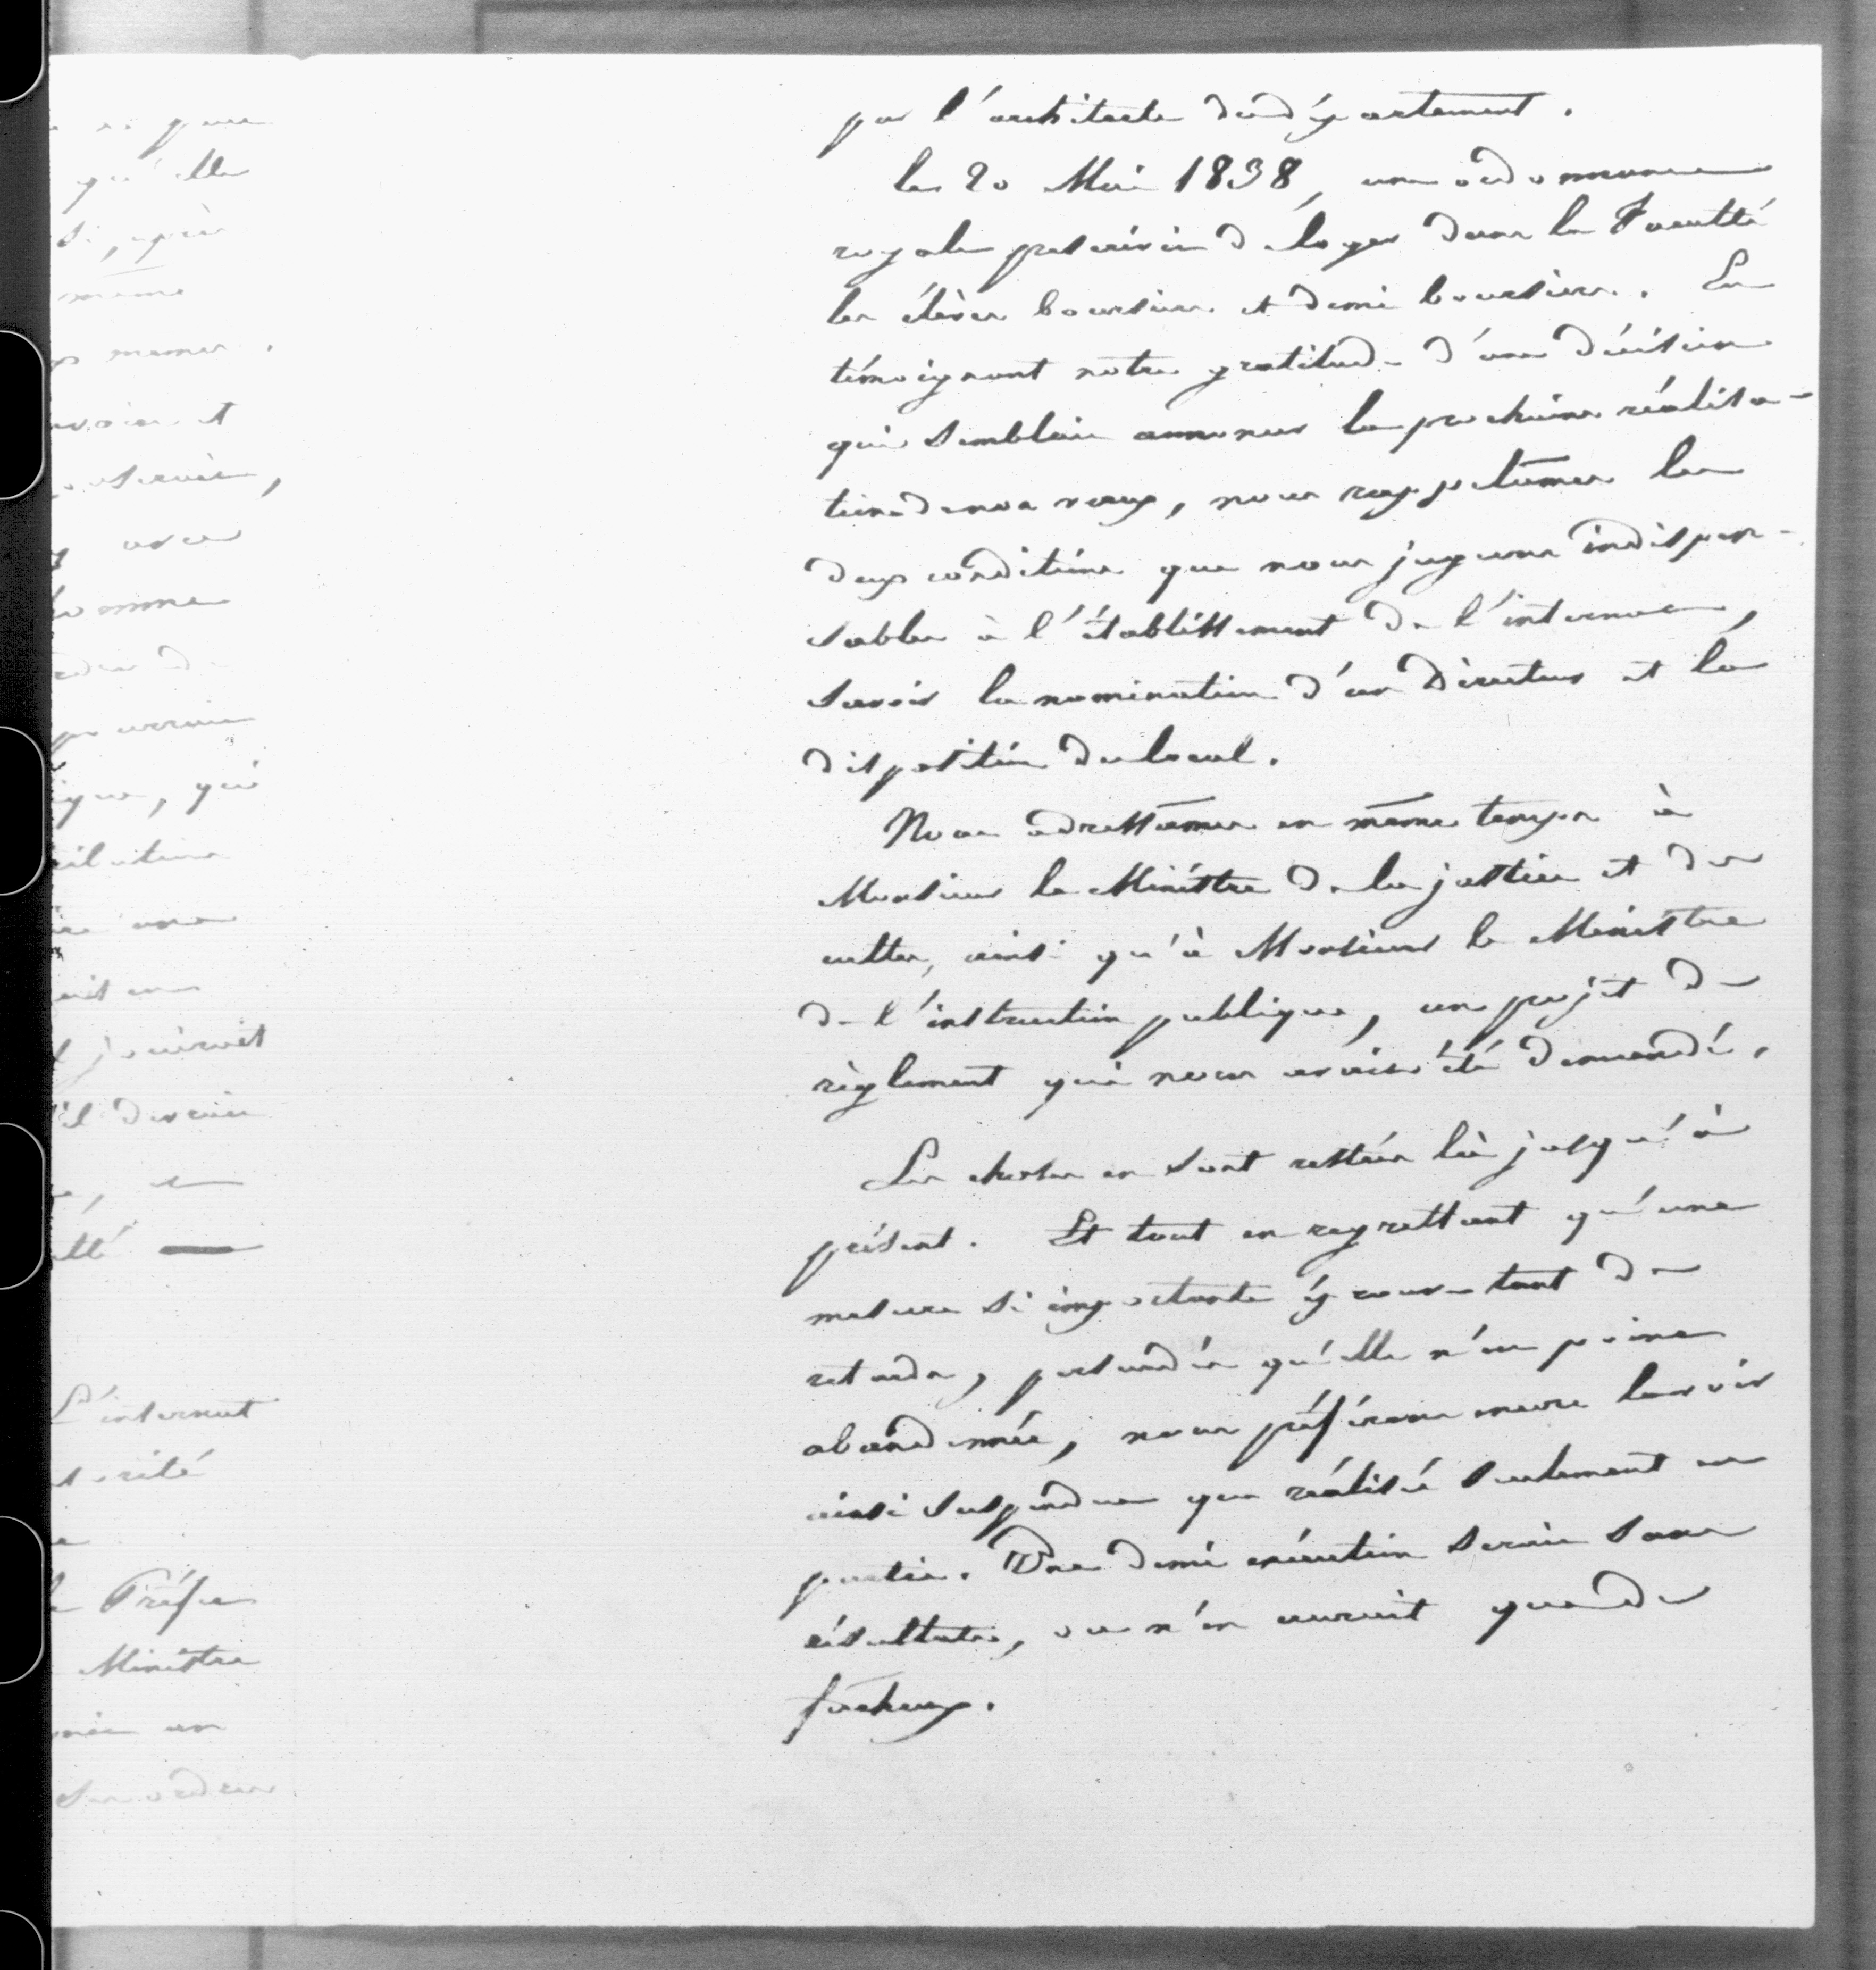 par l'architecte du département.
le 20 Mai 1838, une ordonnance
royale prescrivit de loger dans la Faculté
les élèves boursiers et demi boursiers. En
témoignant notre gratitude d'une décision
qui semblait annoncer la prochaine réalisa-
tion de nos vœux, nous rappelâmes les
deux conditions que nous jugeons indispen-
sables à l'établissement de l'internat,
savoir la nomination d'un Directeur et la
disposition du local.
Nous adressâmes en même temps à
Monsieur le Ministre de la justice et des
cultes, ainsi qu'à Monsieur le Ministre
de l'instruction publique, un projet de
règlement qui nous avait été demandé.
Les choses en sont restées là jusqu'à
présent. Et tout en regrettant qu'une
mesure si importante éprouve tant de
retards, persuadés qu'elle n'est point
abandonnée, nous préférons encore la voir
ainsi suspendue que réalisée seulement en
partie. Une demi exécution serait sans
résultats, ou n'en aurait que de
fâcheux.
qu'elle
même
et
, qui
L'internat
Préfet
Ministre